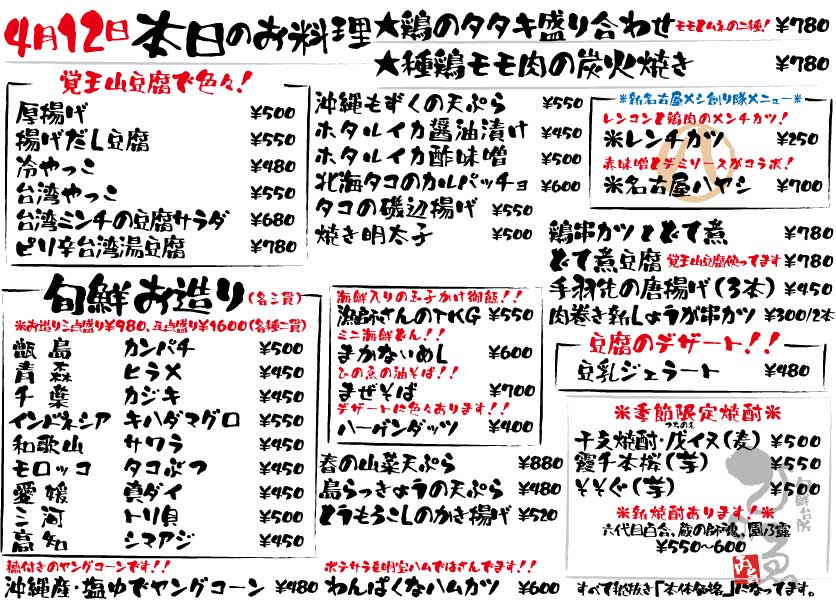 4月12日 本日のお料理
★鶏のタタキ盛り合わせ モモとムネの二種! ¥780
★種鶏モモ肉の炭火焼き ¥780
覚王山豆腐で色々!
厚揚げ ¥500
揚げだし豆腐 ¥550
冷やっこ ¥480
台湾やっこ ¥550
台湾ミンチの豆腐サラダ ¥680
ピリ辛台湾湯豆腐 ¥780
沖縄もずくの天ぷら ¥550
ホタルイカ醤油漬け ¥450
ホタルイカ酢味噌 ¥500
北海タコのカルパッチョ ¥600
タコの磯辺揚げ ¥550
焼き明太子 ¥500
※新名古屋メシ創り隊メニュー※
レンコンと鶏肉のメンチカツ!
※レンチカツ ¥250
赤味噌とデミソースがコラボ!
※名古屋ハヤシ ¥700
鶏串カツとどて煮 ¥780
どて煮豆腐 覚王山豆腐使ってます ¥780
手羽先の唐揚げ(3本) ¥450
肉巻き新しょうが串カツ ¥300/2本
旬鮮お造り(名三貫)
※お造り三点盛り¥980、五点盛り¥1600(各種二貫)
甑島 カンパチ ¥500
青森 ヒラメ ¥450
千葉 カジキ ¥450
インドネシア キハダマグロ ¥550
和歌山 サワラ ¥450
モロッコ タコぶつ ¥450
愛媛 真ダイ ¥450
三河 トリ貝 ¥500
高知 シマアジ ¥450
海鮮入りの玉子かけ御飯!!
漁師さんのTKG ¥550
ミニ海鮮どん!!
まかないめし ¥600
ひの魚の油そば!!
まぜそば ¥700
デザートに色々あります!!
ハーゲンダッツ ¥400
春の山菜天ぷら ¥880
島らっきょうの天ぷら ¥480
とうもろこしのかき揚げ ¥520
豆腐のデザート!!
豆乳ジェラート ¥480
※季節限定焼酎※
つちのえ
干支焼酎・戊イヌ(麦) ¥500
霞千本桜(芋) ¥550
そそぐ(芋) ¥500
※新焼酎あります!※
六代目百合、蔵の師魂、園乃露
¥550~600
穂付きのヤングコーンです!!
沖縄産・塩ゆでヤングコーン ¥480
ポテサラを明宝ハムではさんでます!!
わんぱくなハムカツ ¥600
すべて税抜き「本体価格」になってます。